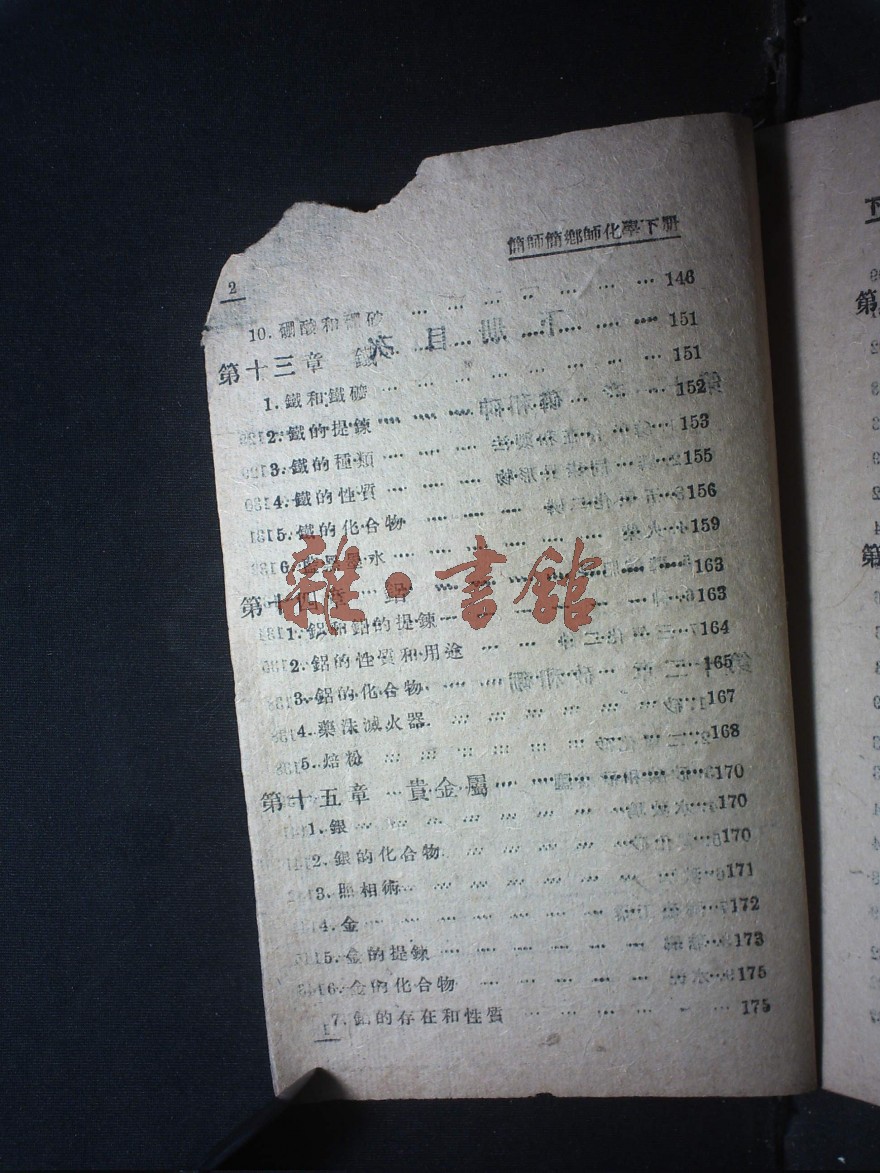 簡師簡鄉師化學下册
2
10. 硼酸和硼砂 … … … … … … … 146
第十三章 鐵 … … … … … … … 151
1. 鐵和鐵礦 … … … … … … … 151
2. 鐵的提鍊 … … … … … … … 152
3. 鐵的種類 … … … … … … … 153
4. 鐵的性質 … … … … … … … 155
5. 鐵的化合物 … … … … … … … 156
6. 墨水 … … … … … … … 159
第十四章 鋁 … … … … … … … 163
1. 鋁和鋁的提鍊 … … … … … … 163
2. 鋁的性質和用途 … … … … … 164
3. 鋁的化合物 … … … … … … 165
4. 藥沫滅火器 … … … … … … 167
5. 焙粉 … … … … … … … … 168
第十五章 貴金屬 … … … … … … 170
1. 銀 … … … … … … … … 170
2. 銀的化合物 … … … … … … 170
3. 照相術 … … … … … … … 171
4. 金 … … … … … … … … 172
5. 金的提鍊 … … … … … … 173
6. 金的化合物 … … … … … … 175
7. 鉑的存在和性質 … … … … … 175
雜·書館